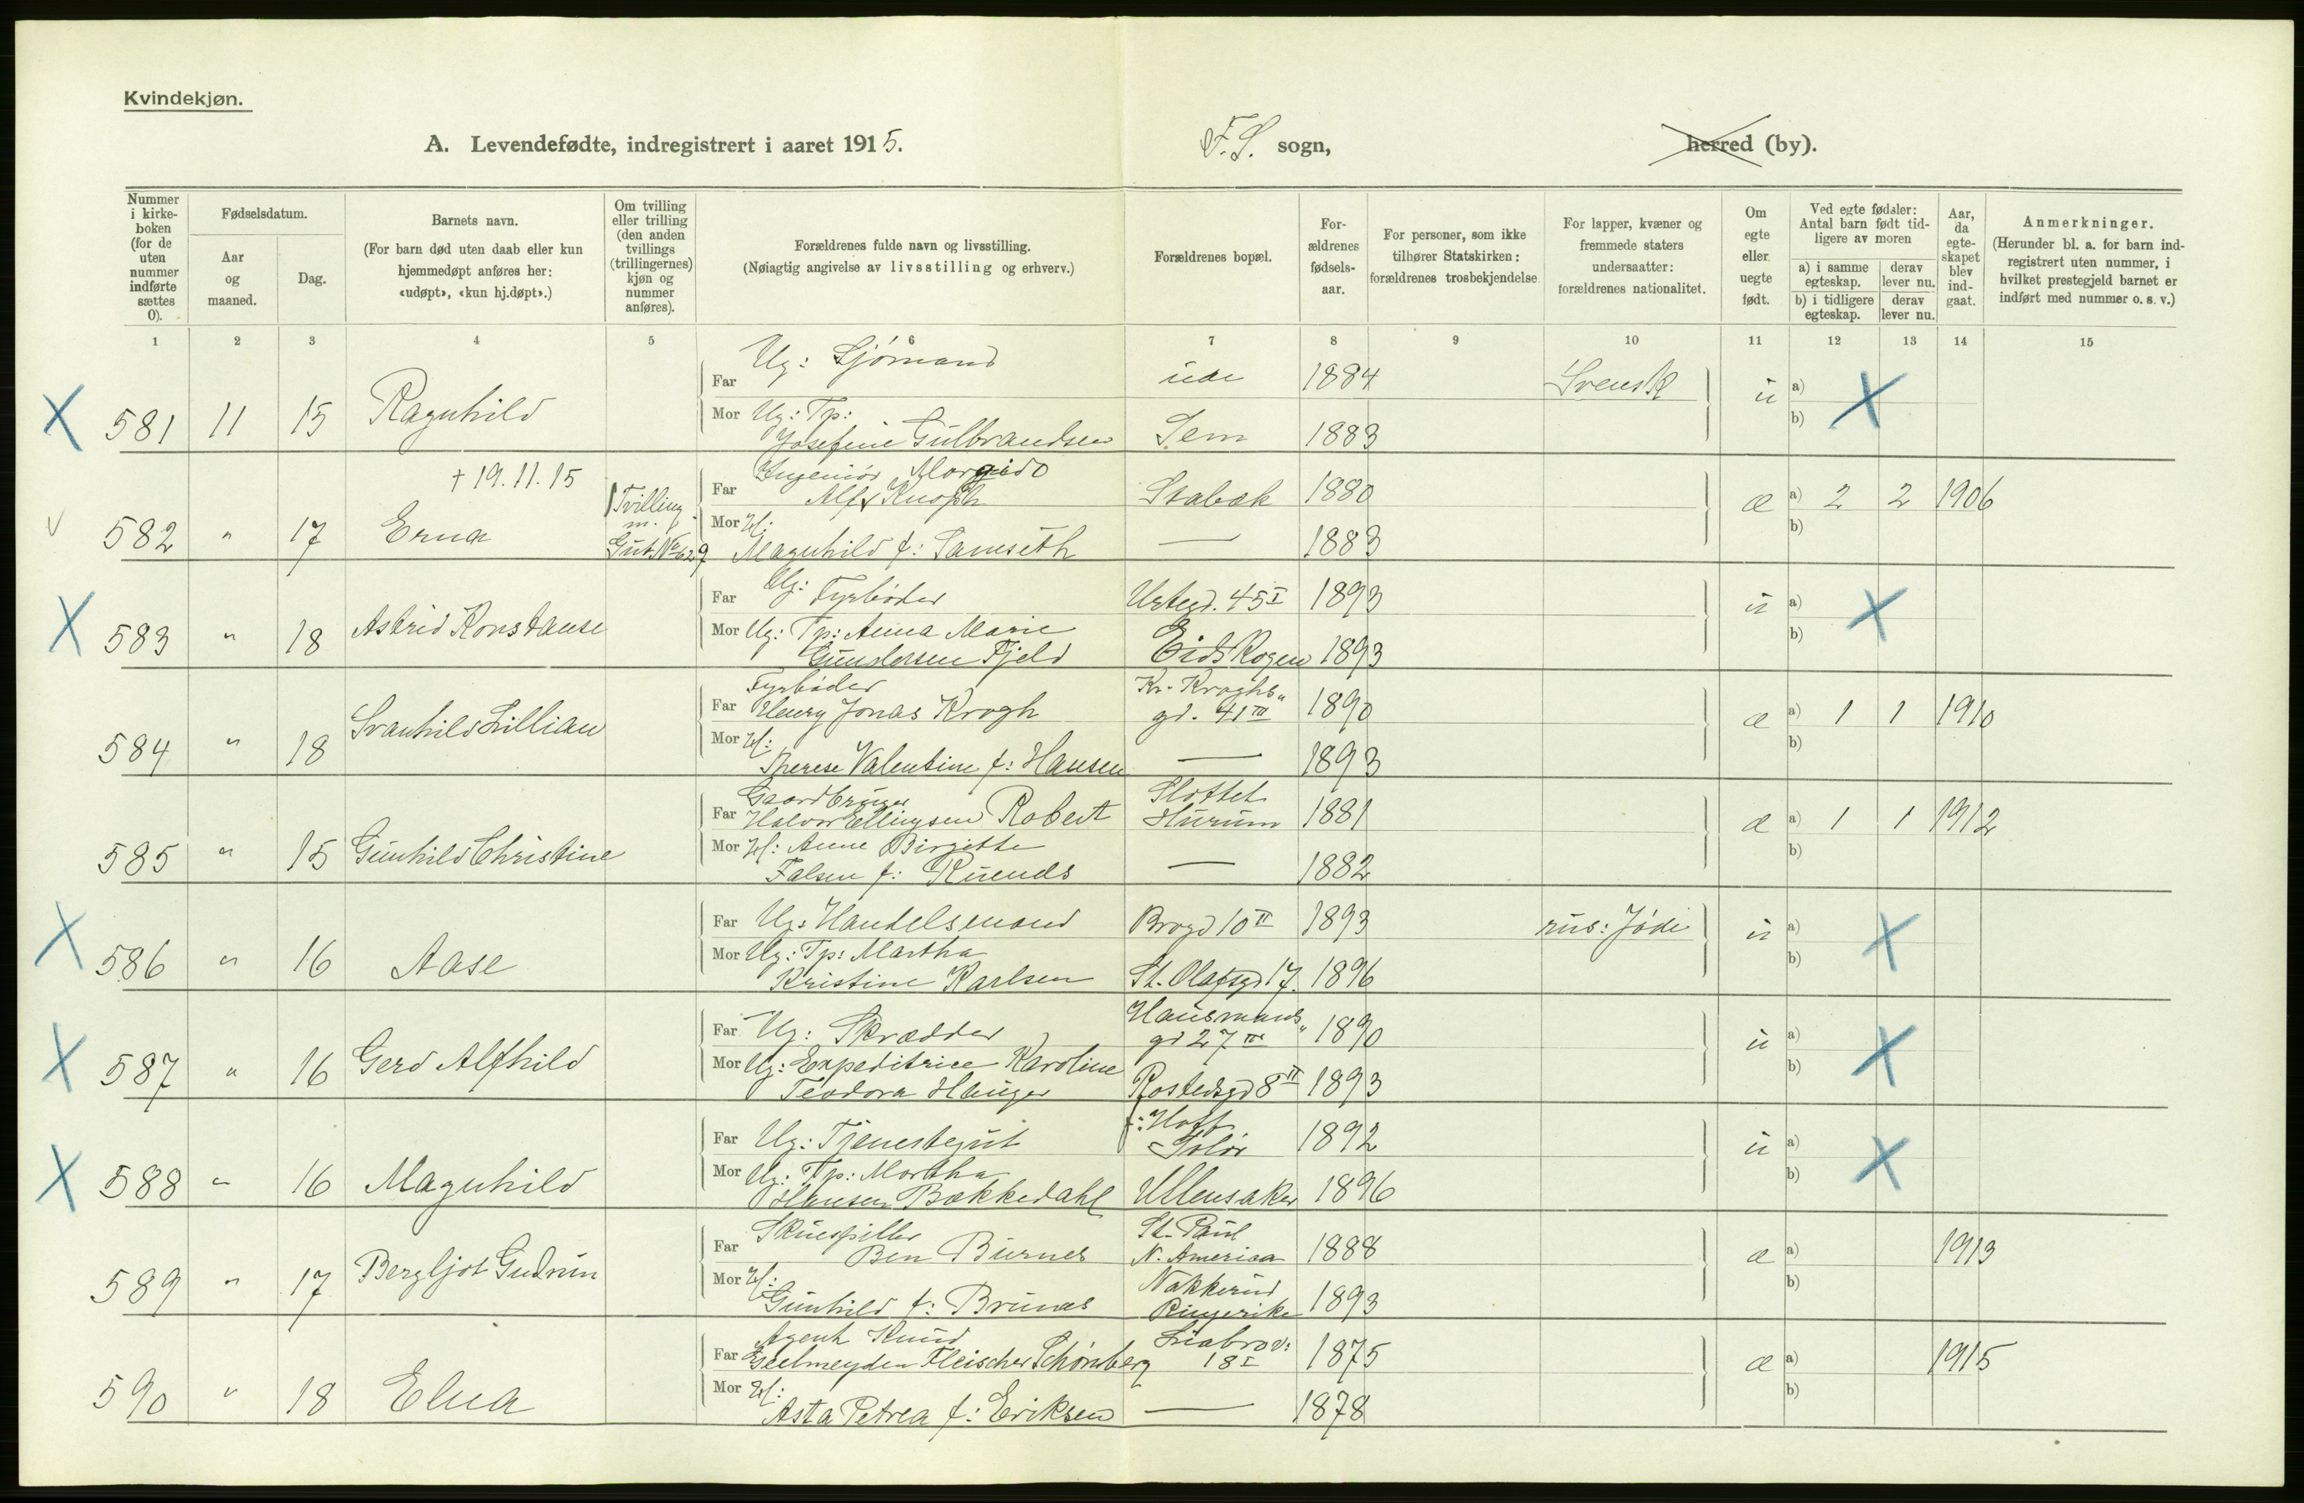 Kvindekjøn.
A. Levendefødte, indregistrert i aaret 1915.
F.S. sogn,
herred (by).
Nummer i kirke-boken (for de uten nummer indførte sættes 0).
Fødselsdatum.
Aar og maaned.
Dag.
Barnets navn.
(For barn død uten daab eller kun hjemmedøpt anføres her: «udøpt», «kun hj.døpt».)
Om tvilling eller trilling (den anden tvillings (trillingernes) kjøn og nummer anføres).
Forældrenes fulde navn og livsstilling.
(Nøiagtig angivelse av livsstilling og erhverv.)
Forældrenes bopæl.
For-ældrenes fødsels-aar.
For personer, som ikke tilhører Statskirken: forældrenes trosbekjendelse
For lapper, kvæner og fremmede staters undersaatter: forældrenes nationalitet.
Om egte eller uegte født.
Ved egte fødsler: Antal barn født tid-ligere av moren
a) i samme egteskap.
derav lever nu.
b) i tidligere egteskap.
derav lever nu.
Aar, da egte-skapet blev ind-gaat.
Anmerkninger.
(Herunder bl. a. for barn ind-registrert uten nummer, i hvilket prestegjeld barnet er indført med nummer o. s. v.)
1 2 3 4 5 6 7 8 9 10 11 12 13 14 15
X 581 11 15 Ragnhild
Far Ug: Sjømand ude 1884 Svensk u a) X
Mor Ug: Tp: b)
Josefine Gulbrandsen Sem 1883
† 19.11.15
582 " 17 Erna
Tvilling m. Gut No 629
Far Ingeniør
Alf Knoph Stabæk 1880 æ a) 2 2 1906
Mor H: b)
Magnhild f: Samseth — 1883
X 583 " 18 Astrid Konstanse
Far Ug: Fyrbøder Urtegd. 45 I 1893 u a) X
Mor Ug: Tp: Anna Marie b)
Gundersen Fjeld Eidskogen 1893
584 " 18 Svanhild Lillian
Fyrbøder Kr. Kroghs"
Far Henry Jonas Krogh gd. 41 III 1890 æ a) 1 1 1910
Mor H: b)
Therese Valentine f: Hansen — 1893
585 " 15 Gunhild Christine
Gaardbruger Slottet
Far Halvor Ellingsen Robert Hurum 1881 æ a) 1 1 1912
Mor H: Anne Birgitte b)
Falsen f: — 1882
X 586 " 16 Aase
Far Ug: Handelsmand Brogd 10 II 1893 rus: Jøde u a) X
Mor Ug: Tp: Martha b)
Kristine Karlsen St. Olafsgd 17. 1896
X 587 " 16 Gerd Alfhild
Far Ug: Skrædder Hausmands"
gd 27 III 1890 u a) X
Mor Ug: Expeditrice Karoline b)
Teodora Hauger Rostedsgd 8 II 1893
X 588 " 16 Magnhild
Far Ug: Tjenestegut f: Hoff
Solør 1892 u a) X
Mor Ug: Tp: Martha b)
Hansen Bækkedahl Ullensaker 1896
589 " 17 Bergljot Gudrun
Skuespiller St. Paul
Far Ben Burnes N. America 1888 æ a) 1913
Mor H: Nakkerud b)
Gunhild f: Brunæs Ringerike 1893
590 " 18 Elna
Agent Knud Ljabrov:
Far Geelmeyden Fleischer Schønberg 18 I 1875 æ a) 1915
Mor H: b)
Asta Petrea f: Eriksen — 1878